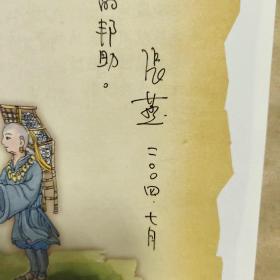 的帮助。
张燕
二〇〇四.七月